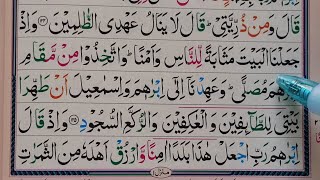 قَالَ وَمِنْ ذُرِّیَّتِیْ ؕ قَالَ لَا یَنَالُ عَهْدِی الظّٰلِمِیْنَ ﴿۱۲۴﴾ وَاِذْ
جَعَلْنَا الْبَیْتَ مَثَابَةً لِّلنَّاسِ وَاَمْنًا ؕ وَاتَّخِذُوْا مِنْ مَّقَامِ
اِبْرٰهٖمَ مُصَلًّی ؕ وَعَهِدْنَاۤ اِلٰۤی اِبْرٰهٖمَ وَاِسْمٰعِیْلَ اَنْ طَهِّرَا
بَیْتِیَ لِلطَّآئِفِیْنَ وَالْعٰكِفِیْنَ وَالرُّكَّعِ السُّجُوْدِ ﴿۱۲۵﴾ وَاِذْ قَالَ
اِبْرٰهٖمُ رَبِّ اجْعَلْ هٰذَا بَلَدًا اٰمِنًا وَّارْزُقْ اَهْلَهٗ مِنَ الثَّمَرٰتِ